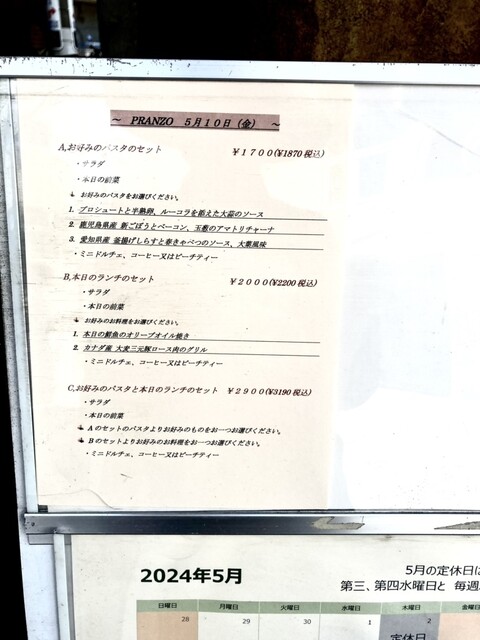 ～ PRANZO 5月10日（金） ～
A,お好みのパスタのセット ￥１７００(¥1870税込)
・サラダ
・本日の前菜
お好みのパスタをお選びください。
1. プロシュートと半熟卵、ルーコラを添えた大蒜のソース
2. 鹿児島県産 新ごぼうとベーコン、玉葱のアマトリチャーナ
3. 愛知県産 釜揚げしらすと春きゃべつのソース、大葉風味
・ミニドルチェ、コーヒー又はピーチティー
B,本日のランチのセット ￥２０００(¥2200税込)
・サラダ
・本日の前菜
お好みのお料理をお選びください。
1. 本日の鮮魚のオリーブオイル焼き
2. カナダ産 大麦三元豚ロース肉のグリル
・ミニドルチェ、コーヒー又はピーチティー
C,お好みのパスタと本日のランチのセット ￥２９００(¥3190税込)
・サラダ
・本日の前菜
Aのセットのパスタよりお好みのものをお一つお選びください。
Bのセットよりお好みのお料理をお一つお選びください。
・ミニドルチェ、コーヒー又はピーチティー
2024年5月
5月の定休日は
第三、第四水曜日と 毎週
日曜日 月曜日 火曜日 水曜日 木曜日 金曜
28 29 30 1 2
定休日